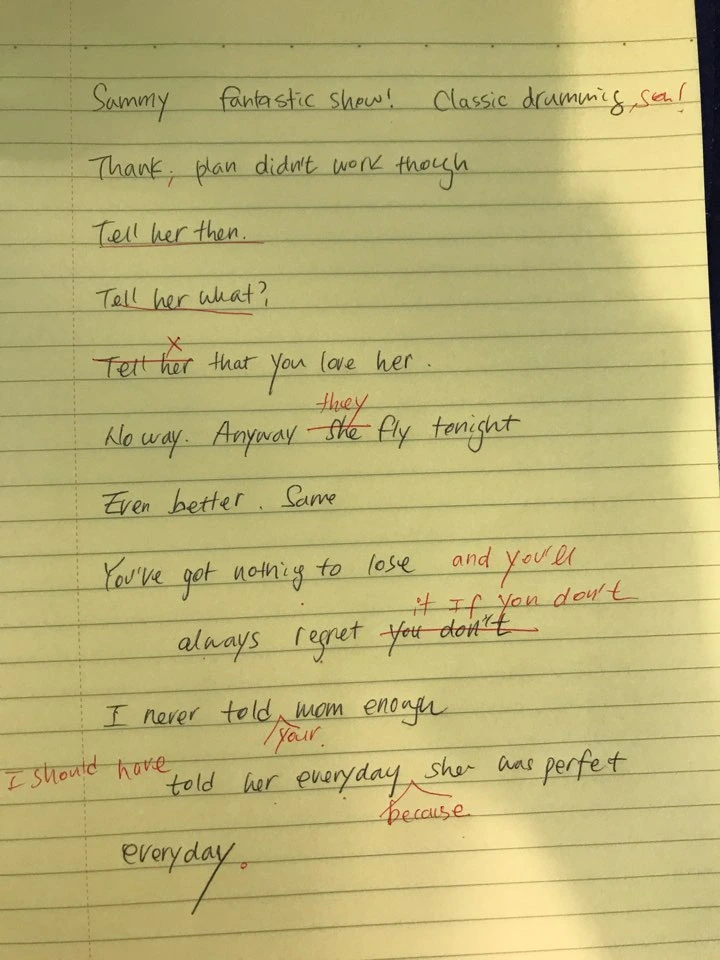 Sammy fantastic show! Classic drumming, son!
Thank, plan didn't work though
Tell her then.
Tell her what?
x
Tell her that you love her.
they
No way. Anyway she fly tonight
Even better. Same
You've got nothing to lose and you'll
it If you don't
always regret you don't
I never told mom enough
your.
I should have told her everyday she was perfect
because
everyday.